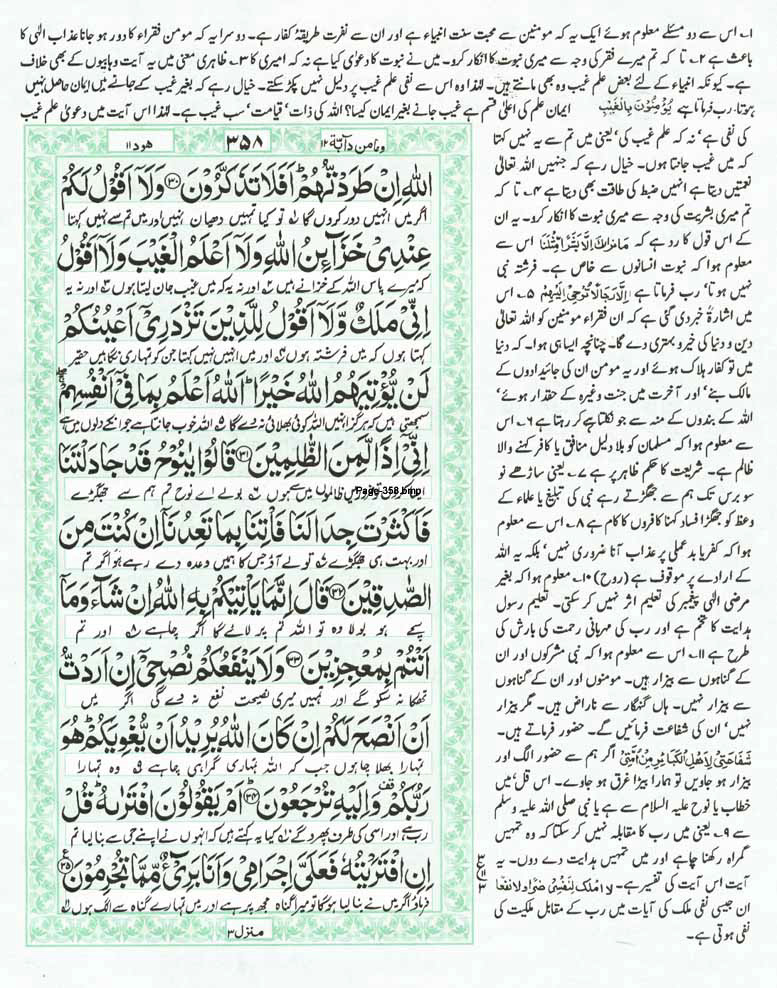 ۱۔ اس سے دو مسئلے معلوم ہوئے ایک یہ کہ مومنین سے محبت سنت انبیاء ہے اور ان سے نفرت طریقۂ کفار ہے۔ دوسرا یہ کہ مومن فقراء کا دور ہو جانا عذاب الٰہی کا
باعث ہے ۲۔ تا کہ تم میرے فقر کی وجہ سے میری نبوت کا انکار کرو۔ میں نے نبوت کا دعویٰ کیا ہے نہ کہ امیری کا ۳۔ ظاہری معنی میں یہ آیت وہابیوں کے بھی خلاف
ہے۔ کیونکہ انبیاء کے لئے بعض علم غیب وہ بھی مانتے ہیں۔ لہٰذا وہ اس سے نفی علم غیب پر دلیل نہیں پکڑ سکتے۔ خیال رہے کہ بغیر غیب کے جانے میں ایمان حاصل نہیں
ہوتا، رب فرماتا ہے یُؤْمِنُوْنَ بِالْغَیْبِ ایمان علم کی اعلیٰ قسم ہے غیب جانے بغیر ایمان کیسا؟ اللہ کی ذات' قیامت' سب غیب ہے۔ لہٰذا اس آیت میں دعویٰ علم غیب
کی نفی ہے' نہ کہ علم غیب کی' یعنی میں تم سے یہ نہیں کہتا
کہ میں غیب جانتا ہوں۔ خیال رہے کہ جنہیں اللہ تعالیٰ
نعمتیں دیتا ہے انہیں ضبط کی طاقت بھی دیتا ہے ۴۔ تا کہ
تم میری بشریت کی وجہ سے میری نبوت کا انکار کرو۔ یہ ان
کے اس قول کا رد ہے کہ مَا نَرٰىكَ اِلَّا بَشَرًا مِّثْلَنَا اس سے
معلوم ہوا کہ نبوت انسانوں سے خاص ہے۔ فرشتہ نبی
نہیں ہوتا' رب فرماتا ہے اِلَّا رِجَالًا نُّوْحِیْۤ اِلَیْهِمْ ۵۔ اس
میں اشارۃً خبر دی گئی ہے کہ ان فقراء مومنین کو اللہ تعالیٰ
دین و دنیا کی خیر و بہتری دے گا۔ چنانچہ ایسا ہی ہوا۔ کہ دنیا
میں تو کفار ہلاک ہوئے اور یہ مومن ان کی جائیدادوں کے
مالک بنے' اور آخرت میں جنت وغیرہ کے حقدار ہوئے'
اللہ کے بندوں کے منہ سے جو نکلتا ہے کر رہتا ہے ۶۔ اس
سے معلوم ہوا کہ مسلمان کو بلا دلیل منافق یا کافر کہنے والا
ظالم ہے۔ شریعت کا حکم ظاہر پر ہے ۷۔ یعنی ساڑھے نو
سو برس تک ہم سے جھگڑتے رہے نبی کی تبلیغ یا علماء کے
وعظ کو جھگڑا فساد کہنا کافروں کا کام ہے ۸۔ اس سے معلوم
ہوا کہ کفر یا بدعملی پر عذاب آنا ضروری نہیں' بلکہ یہ اللہ
کے ارادے پر موقوف ہے (روح) ۱۰۔ معلوم ہوا کہ بغیر
مرضی الٰہی پیغمبر کی تعلیم اثر نہیں کر سکتی۔ تعلیم رسول
ہدایت کا تخم ہے اور رب کی مہربانی رحمت کی بارش کی
طرح ہے ۱۱۔ اس سے معلوم ہوا کہ نبی مشرکوں اور ان
کے گناہوں سے بیزار ہیں۔ مومنوں اور ان کے گناہوں
سے بیزار نہیں۔ ہاں گنہگار سے ناراض ہیں۔ مگر بیزار
نہیں' ان کی شفاعت فرمائیں گے۔ حضور فرماتے ہیں۔
شَفَاعَتِیْ لِاَهْلِ الْكَبَائِرِ مِنْ اُمَّتِیْ اگر ہم سے حضور الگ اور
بیزار ہو جاویں تو ہمارا بیڑا غرق ہو جاوے۔ اس قُل میں
خطاب یا نوح علیہ السلام سے ہے یا نبی صلی اللہ علیہ وسلم
سے ۹۔ یعنی میں رب کا مقابلہ نہیں کر سکتا کہ وہ تمہیں
گمراہ رکھنا چاہے اور میں تمہیں ہدایت دے دوں۔ یہ
آیت اس آیت کی تفسیر ہے۔ لَا اَمْلِكُ لِنَفْسِیْ ضَرًّا وَّلَا نَفْعًا
ان جیسی نفی ملک کی آیات میں رب کے مقابل ملکیت کی
نفی ہوتی ہے۔
ومامن دآبۃ ۱۲ ۳۵۸ ھود ۱۱
اللّٰهِ اِنْ طَرَدْتُّهُمْ ؕ اَفَلَا تَذَكَّرُوْنَ ﴿۳۰﴾ وَلَاۤ اَقُوْلُ لَكُمْ
اگر میں انہیں دور کروں گا ۱؎ تو کیا تمہیں دھیان نہیں اور میں تم سے نہیں کہتا
عِنْدِیْ خَزَآىِٕنُ اللّٰهِ وَلَاۤ اَعْلَمُ الْغَیْبَ وَلَاۤ اَقُوْلُ
کہ میرے پاس اللہ کے خزانے ہیں ۲؎ اور نہ یہ کہ میں غیب جان لیتا ہوں ۳؎ اور نہ یہ
اِنِّیْ مَلَكٌ وَّلَاۤ اَقُوْلُ لِلَّذِیْنَ تَزْدَرِیْۤ اَعْیُنُكُمْ
کہتا ہوں کہ میں فرشتہ ہوں ۴؎ اور میں انہیں نہیں کہتا جن کو تمہاری نگاہیں حقیر
لَنْ یُّؤْتِیَهُمُ اللّٰهُ خَیْرًا ؕ اَللّٰهُ اَعْلَمُ بِمَا فِیْۤ اَنْفُسِهِمْ
سمجھتی ہیں کہ ہرگز انہیں اللہ کوئی بھلائی نہ دے گا ۵؎ اللہ خوب جانتا ہے جو انکے دلوں میں ہے
اِنِّیْۤ اِذًا لَّمِنَ الظّٰلِمِیْنَ ﴿۳۱﴾ قَالُوْا یٰنُوْحُ قَدْ جَادَلْتَنَا
ظالموں میں سے ہوں ۶؎ بولے اے نوح تم ہم سے جھگڑے
Page-358.bmp
فَاَكْثَرْتَ جِدَالَنَا فَاْتِنَا بِمَا تَعِدُنَاۤ اِنْ كُنْتَ مِنَ
اور بہت ہی جھگڑے ۷؎ تو لے آؤ جس کا ہمیں وعدہ دے رہے ہو اگر تم
الصّٰدِقِیْنَ ﴿۳۲﴾ قَالَ اِنَّمَا یَاْتِیْكُمْ بِهِ اللّٰهُ اِنْ شَآءَ وَمَاۤ
سچے ہو بولا وہ تو اللہ تم پر لائے گا اگر چاہے ۸؎ اور تم
اَنْتُمْ بِمُعْجِزِیْنَ ﴿۳۳﴾ وَلَا یَنْفَعُكُمْ نُصْحِیْۤ اِنْ اَرَدْتُّ
تھکا نہ سکو گے اور تمہیں میری نصیحت نفع نہ دے گی اگر میں
اَنْ اَنْصَحَ لَكُمْ اِنْ كَانَ اللّٰهُ یُرِیْدُ اَنْ یُّغْوِیَكُمْ ؕ هُوَ
تمہارا بھلا چاہوں جب کہ اللہ تمہاری گمراہی چاہے ۹؎ وہ تمہارا
رَبُّكُمْ وَاِلَیْهِ تُرْجَعُوْنَ ﴿۳۴﴾ اَمْ یَقُوْلُوْنَ افْتَرٰىهُ ؕ قُلْ
رب ہے اور اسی کی طرف پھرو گے ۱۰؎ کیا یہ کہتے ہیں کہ انہوں نے اپنے جی سے بنا لیا تم
اِنِ افْتَرَیْتُهٗ فَعَلَیَّ اِجْرَامِیْ وَاَنَا بَرِیْٓءٌ مِّمَّا تُجْرِمُوْنَ ﴿۳۵﴾
فرماؤ اگر میں نے بنا لیا ہوگا تو میرا گناہ مجھ پر ہے اور میں تمہارے گناہ سے الگ ہوں ۱۱؎
منزل ۳